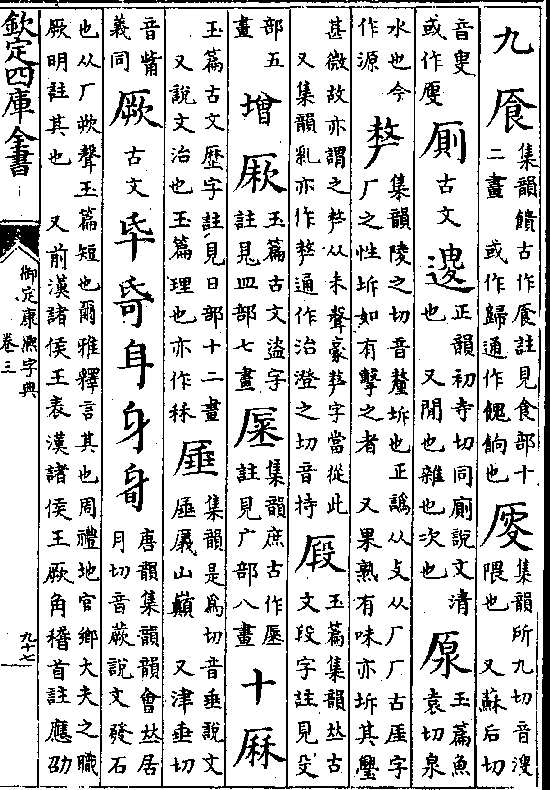 九
集韻饋古作
註見食部十
二畫 或作歸通作餽餉也
集韻所九切音溲
隈也 又蘇后切
音叟
或作廋
厠
古文
正韻初寺切同廁說文清
也 又閒也雜也次也
厡
玉篇魚
袁切泉
水也今
作源
𠩺
集韻陵之切音釐坼也正譌从攴从厂厂古厓字
厂之性坼如有擊之者 又果熟有味亦坼其璺
甚微故亦謂之𠩺从未聲氂𠩺字當從此
又集韻亂亦作𠩺通作治澄之切音持
玉篇集韻𠀤古
文段字註見殳
部五
畫
增
玉篇古文盜字
註見皿部七畫
集韻庶古作
註見广部八畫
十
厤
玉篇古文歷字註見日部十二畫
又說文治也玉篇理也亦作秝
厜
集韻是爲切音垂說文
厜㕒山巔 又津垂切
音觜
義同
厥
古文
唐韻集韻韻會𠀤居
月切音蕨說文發石
也从厂欮聲玉篇短也爾雅釋言其也周禮地官鄉大夫之職
厥明註其也 又前漢諸侯王表漢諸侯王厥角稽首註應劭
欽定四庫全書
御定康熙字典
卷三
九十七